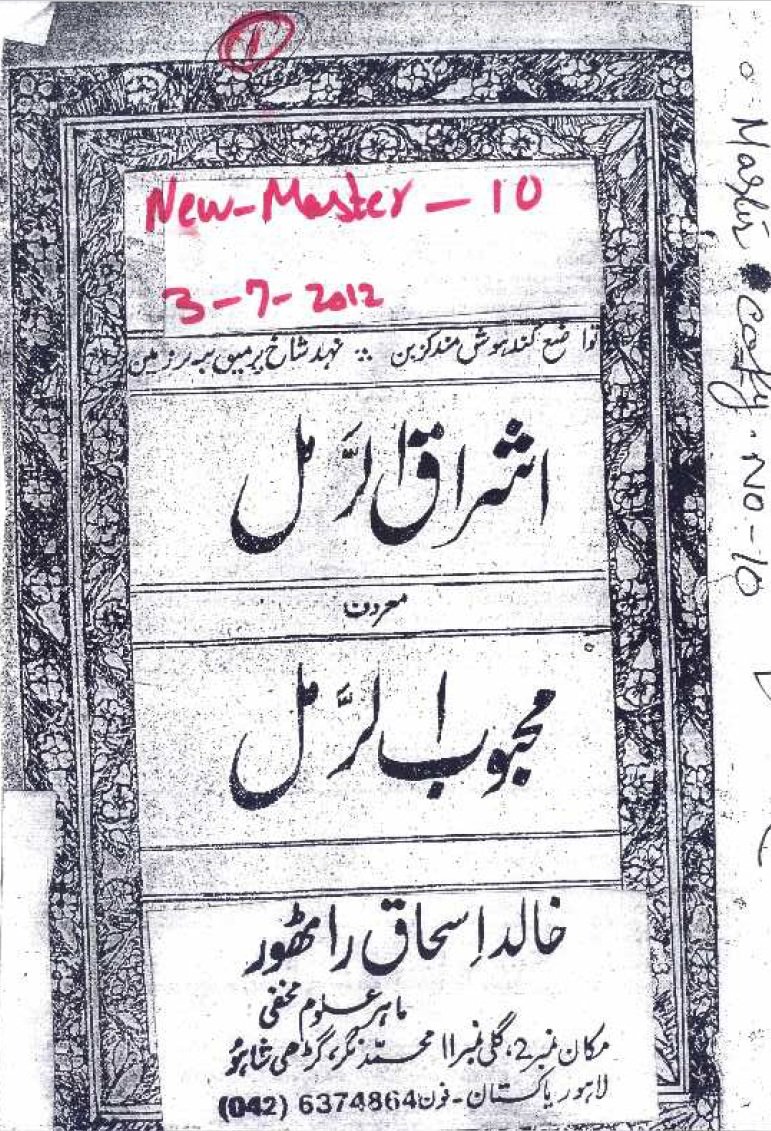 1
New-Master - 10
3-7-2012
تواضع کند ہوش مند گزین ؞ نہد شاخ پر میوہ سر بر زمین
اشراق الرَّمل
معروف
محبوب الرَّمل
خالد اسحاق راٹھور
ماہر علوم مخفی
مکان نمبر 2، گلی نمبر 11 محمد نگر، گڑھی شاہو
لاہور پاکستان - فون 6374864 (042)
Master copy. No-10